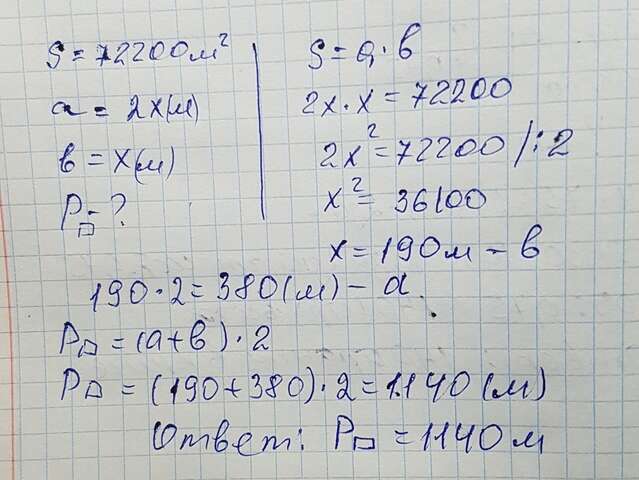 S = 72200 м²
a = 2x(м)
в = x(м)
P▭ - ?
S = a · в
2x · x = 72200
2x² = 72200 /: 2
x² = 36100
x = 190м - в
190 · 2 = 380(м) - a
P▭ = (a + в) · 2
P▭ = (190 + 380) · 2 = 1140(м)
Ответ: P▭ = 1140 м